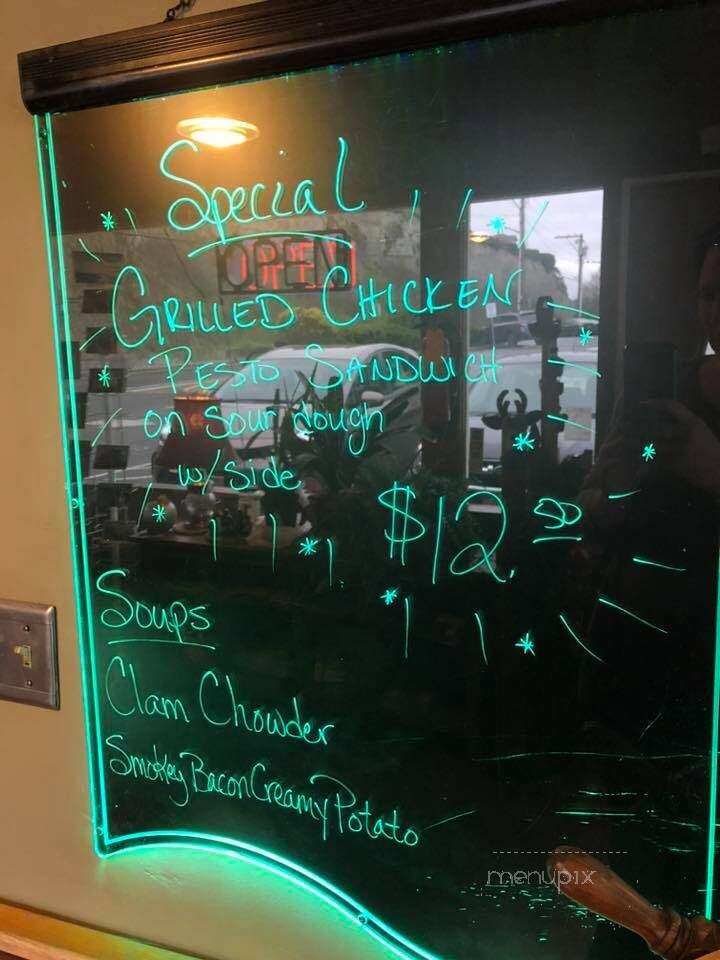 Special
OPEN
GRILLED CHICKEN
PESTO SANDWICH
on Sour dough
w/ side
$12.50
Soups
Clam Chowder
Smokey Bacon Creamy Potato
menupix